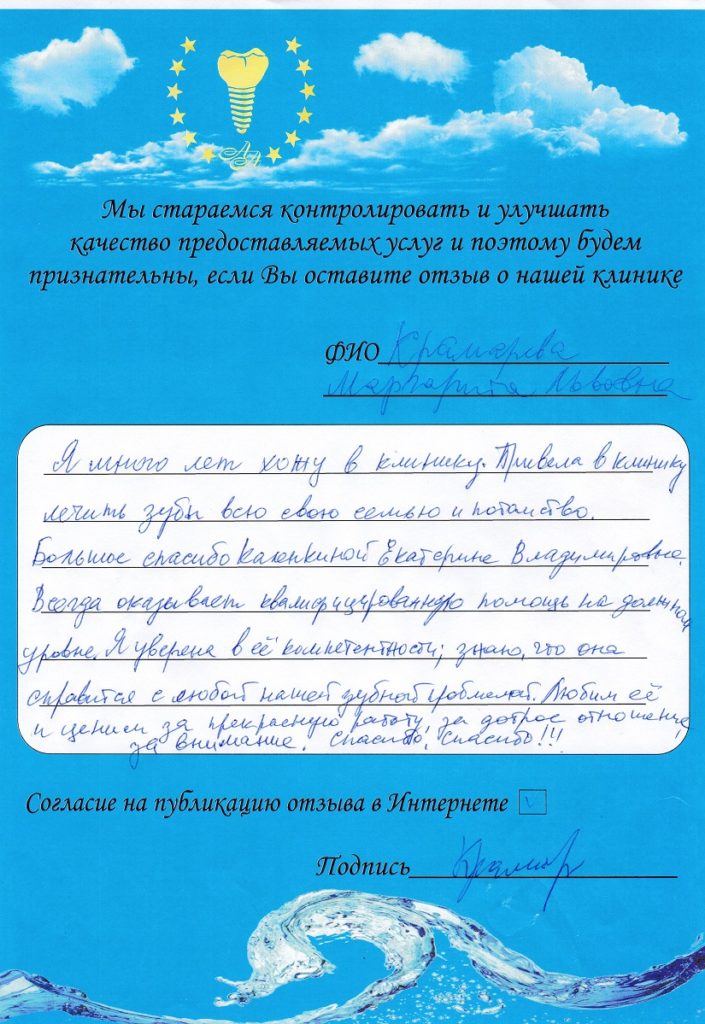 АА
Мы стараемся контролировать и улучшать
качество предоставляемых услуг и поэтому будем
признательны, если Вы оставите отзыв о нашей клинике
ФИО Крамарева
Маргарита Львовна
Я много лет хожу в клинику. Привела в клинику
лечить зубы всю свою семью и потомство.
Большое спасибо Каленкиной Екатерине Владимировне.
Всегда оказывает квалифицированную помощь на должном
уровне. Я уверена в её компетентности; знаю, что она
справится с любой нашей зубной проблемой. Любим её
и ценим за прекрасную работу, за доброе отношение,
за внимание. Спасибо, спасибо!!!
Согласие на публикацию отзыва в Интернете V
Подпись